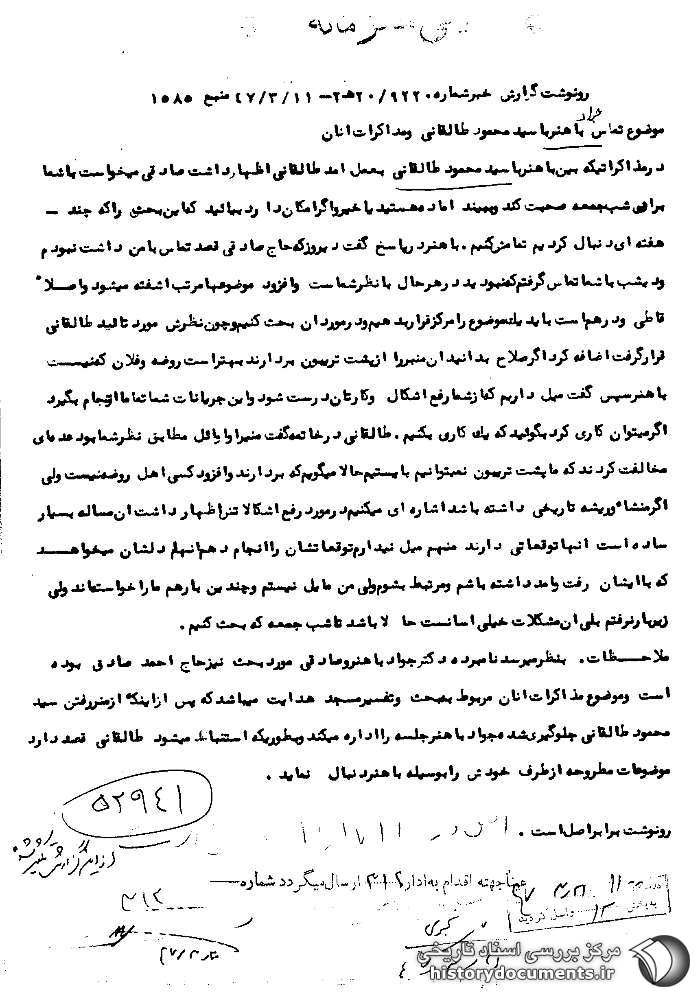 رونوشت گزارش خبر شماره ۲۰/۹۲۲۰هـ۲ – ۴۷/۳/۱۱ منبع ۱۵۸۵
جواد
موضوع تماس با هنر با سید محمود طالقانی ومذاکرات انان
در مذاکراتیکه بین با هنر با سید محمود طالقانی بعمل امد طالقانی اظهار داشت صادقی میخواست با شما
برای شب جمعه صحبت کند وببیند اماده هستید یا خیر واگر امکان دارد بیائید که این بحثی را که چند –
هفته ای دنبال کردیم تمامش کنیم . با هنر در پاسخ گفت دیروز که حاج صادقی قصد تماس با من داشت نبودم
ودیشب با شما تماس گرفتم که نبودید در هر حال با نظر شماست وافزود موضوعها مرتب اشفته میشود واصلا"
قاطی ودرهم است باید یک موضوع را مرکز قرار بدهیم ودر مورد ان بحث کنیم وچون نظرش مورد تائید طالقانی
قرار گرفت اضافه کرد اگر صلاح بدانید ان منبر را از پشت تریبون بردارند بهتر است روضه وفلان که نیست
با هنر سپس گفت میل داریم که از شما رفع اشکال وکارتان درست شود واین جریانات شما تماما انجام بگیرد
اگر میتوان کاری کرد بگوئید که یك کاری بکنیم . طالقانی در خاتمه گفت منبر اوائل مطابق نظر شما بود عده‌ای
مخالفت کردند که ما پشت تریبون نمیتوانیم بایستیم حالا میگویم که بردارند وافزود کسی اهل روضه نیست ولی
اگر منشاء وریشه تاریخی داشته باشد اشاره ای میکنیم در مورد رفع اشکالاتش اظهار داشت ان مساله بسیار
ساده است انها توقعاتی دارند منهم میل ندارم توقعاتشان را انجام دهم انها دلشان میخواهــد
که با ایشان رفت وامد داشته باشم ومرتبط بشوم ولی من مایل نیستم وچندین بار هم ما را خواسته‌اند ولی
زیر بار نرفتم بلی ان مشکلات خیلی اسانست حالا باشد تا شب جمعه که بحث کنیم .
ملاحــظات . بنظر میرسد نامبرده دکتر جواد با هنر وصادقی مورد بحث نیز حاج احمد صادقی بوده
است وموضوع مذاکرات انان مربوط به بحث وتفسیر مسجد هدایت میباشد که پس از اینکه از منبر رفتن سید
محمود طالقانی جلوگیری شده جواد با هنر جلسه را اداره میکند وبطوریکه استنباط میشود طالقانی قصد دارد
موضوعات مطروحه از طرف خودش را بوسیله با هنر دنبال نماید .
۵۲۹۴۱
رونوشت برابر اصل است .
عیناً جهته اقدام به اداره ۳۱۲ ارسال میگردد شماره
۳۱۲
مرکز بررسی اسناد تاریخی
historydocuments.ir